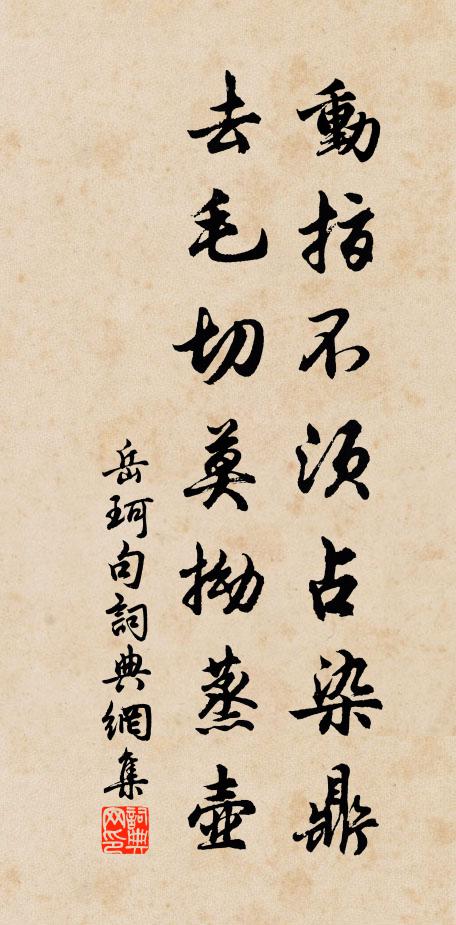 動指不須占染鼎
去毛切莫拗蒸壺
岳珂句詞典網集
詞典网印